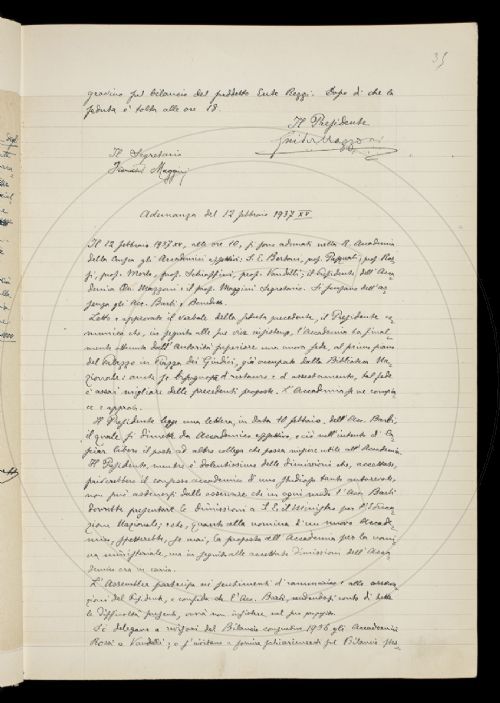 35
gravino sul bilancio del suddetto Ente Rezzi. Dopo di che la
seduta è tolta alle ore 18.
Il Presidente
Guido Mazzoni
Il Segretario
Maggini
Adunanza del 12 febbraio 1937 XV
Il 12 febbraio 1937 XV, alle ore 10, si sono adunati nella R. Accademia
della Crusca gli Accademici effettivi: S. E. Bertoni, prof. Pasquali, prof. Ros-
si, prof. Merlo, prof. Schiaffini, prof. Vandelli; il Presidente dell'Acca-
demia On. Mazzoni e il prof. Maggini Segretario. Si scusano dell'as-
senza gli Acc. Barbi e
Letto e approvato il verbale della seduta precedente, il Presidente co-
munica che, in seguito alle sue vive insistenze, l'Accademia ha final-
mente ottenuto dall'Autorità superiore una nuova sede, al primo piano
del Palazzo in Piazza dei Giudici, già occupato dalla Biblioteca Na-
zionale: anche se bisognosa di restauro e di assestamento, tal sede
è assai migliore delle precedenti proposte. L'Accademia se ne compia-
ce e approva.
Il Presidente legge una lettera, in data 10 febbraio, dell'Acc. Barbi,
il quale si dimette da Accademico effettivo, e ciò nell'intento di la-
sciar libero il posto ad altro collega che possa essere utile all'Accademia.
Il Presidente, mentre è dolentissimo delle dimissioni che, accettate,
priverebbero il consesso accademico d'uno studioso tanto autorevole,
non può astenersi dall'osservare che in ogni modo l'Acc. Barbi
dovrebbe presentare le dimissioni a S. E. il Ministro per l'Educa-
zione Nazionale; e che, quanto alla nomina d'un nuovo Accade-
mico, spetterebbe, se mai, la proposta all'Accademia per la nomi-
na ministeriale, ma in seguito alle accettate dimissioni dell'Acca-
demico ora in carica.
L'Assemblea partecipa ai sentimenti di rammarico e alle osserva-
zioni del Presidente, e confida che l'Acc. Barbi, rendendosi conto di tutte
le difficoltà presenti, vorrà non insistere nel suo proposito.
Si delegano a revisori del Bilancio consuntivo 1936 gli Accademici
Rossi e Vandelli; e s'invitano a fornire schiarimenti sul Bilancio stes-